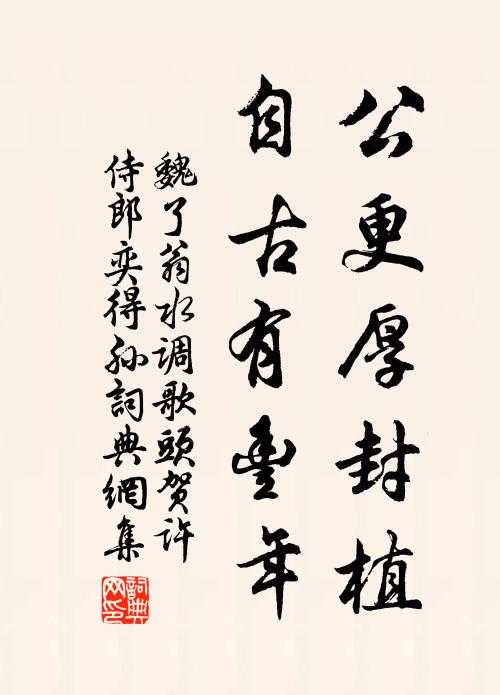 公更厚封植
自古有豐年
魏了翁水调歌頭贺許
侍郎奕得孙詞典網集
詞典網印